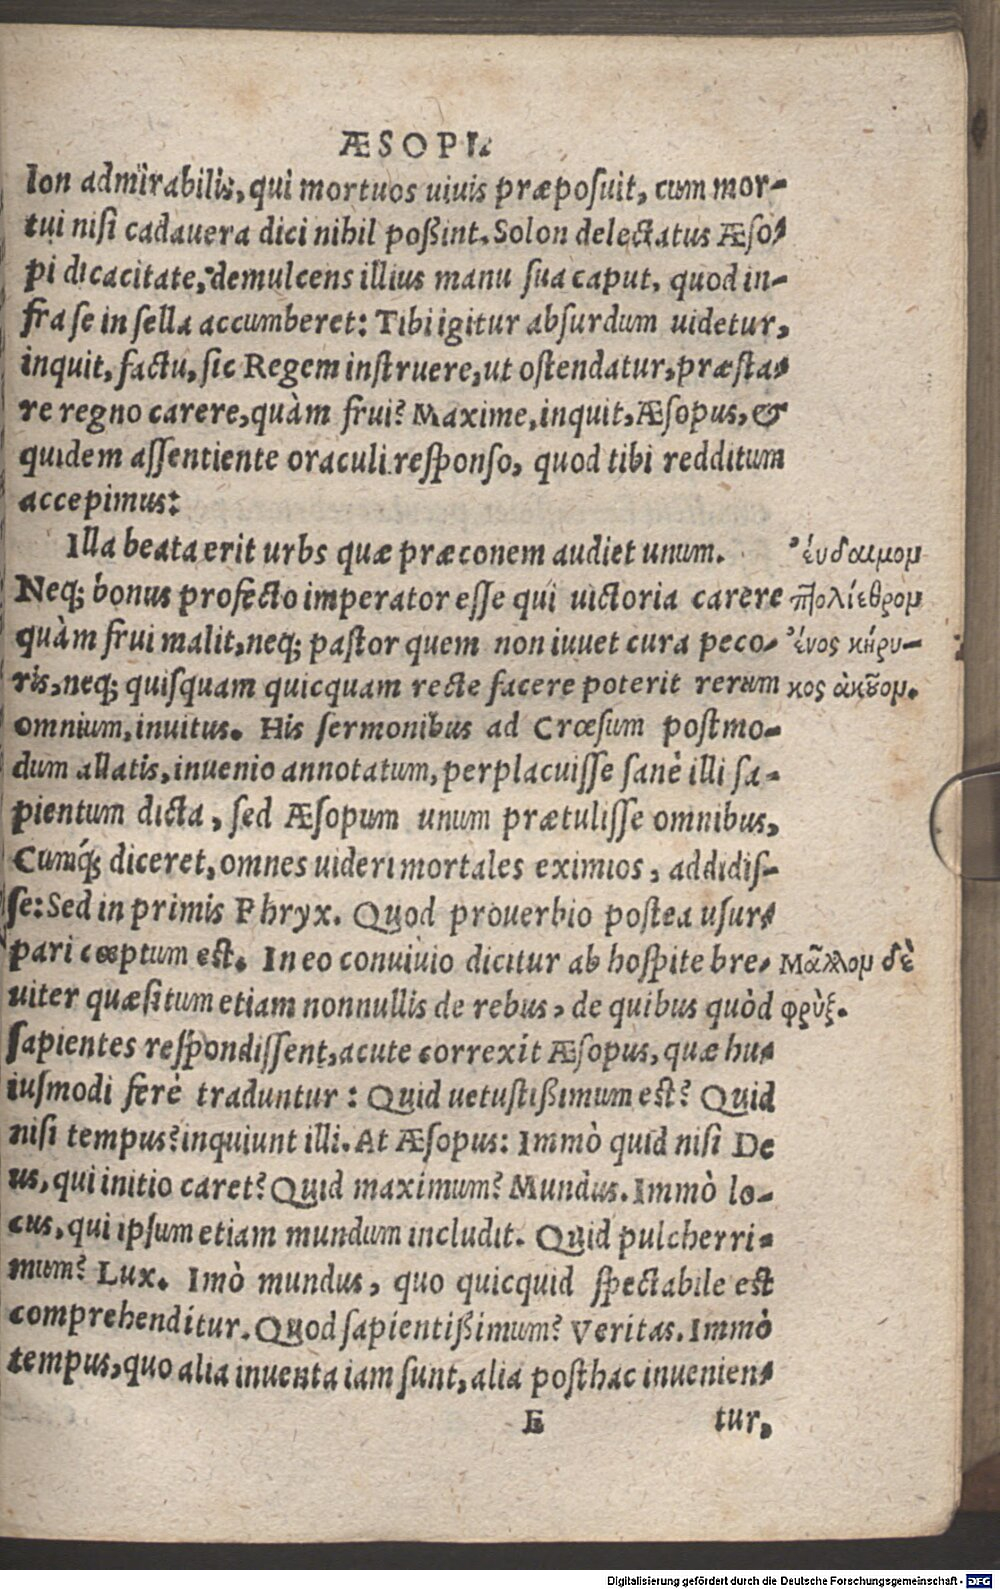 ÆSOPI.
lon admirabilis, qui mortuos uiuis præposuit, cum mor-
tui nisi cadauera dici nihil poßint. Solon delectatus Æso-
pi dicacitate, demulcens illius manu sua caput, quod in-
fra se in sella accumberet: Tibi igitur absurdum uidetur,
inquit, factu, sic Regem instruere, ut ostendatur, præsta-
re regno carere, quàm frui? Maxime, inquit, Æsopus, &
quidem assentiente oraculi responso, quod tibi redditum
accepimus:
Illa beata erit urbs quæ præconem audiet unum. ἐύδαιμομ
Neq; bonus profecto imperator esse qui uictoria carere πτολίεθρομ
quàm frui malit, neq; pastor quem non iuuet cura peco- ἑνος κήρυ-
ris, neq; quisquam quicquam recte facere poterit rerum κος ἀκȣομ.
omnium, inuitus. His sermonibus ad Crœsum postmo-
dum allatis, inuenio annotatum, perplacuisse sanè illi sa-
pientum dicta, sed Æsopum unum prætulisse omnibus,
Cumq́; diceret, omnes uideri mortales eximios, addidis-
se: Sed in primis Phryx. Quod prouerbio postea usur-
pari cœptum est. In eo conuiuio dicitur ab hospite bre- Μᾶλλομ δὲ
uiter quæsitum etiam nonnullis de rebus, de quibus quòd φρὺξ.
sapientes respondissent, acute correxit Æsopus, quæ hu-
iusmodi ferè traduntur: Quid uetustißimum est? Quid
nisi tempus? inquiunt illi. At Æsopus: Immò quid nisi De
us, qui initio caret? Quid maximum? Mundus. Immò lo-
cus, qui ipsum etiam mundum includit. Quid pulcherri-
mum? Lux. Imò mundus, quo quicquid spectabile est
comprehenditur. Quod sapientißimum? Veritas. Immò
tempus, quo alia inuenta iam sunt, alia posthac inuenien-
E tur,
Digitalisierung gefördert durch die Deutsche Forschungsgemeinschaft - DFG